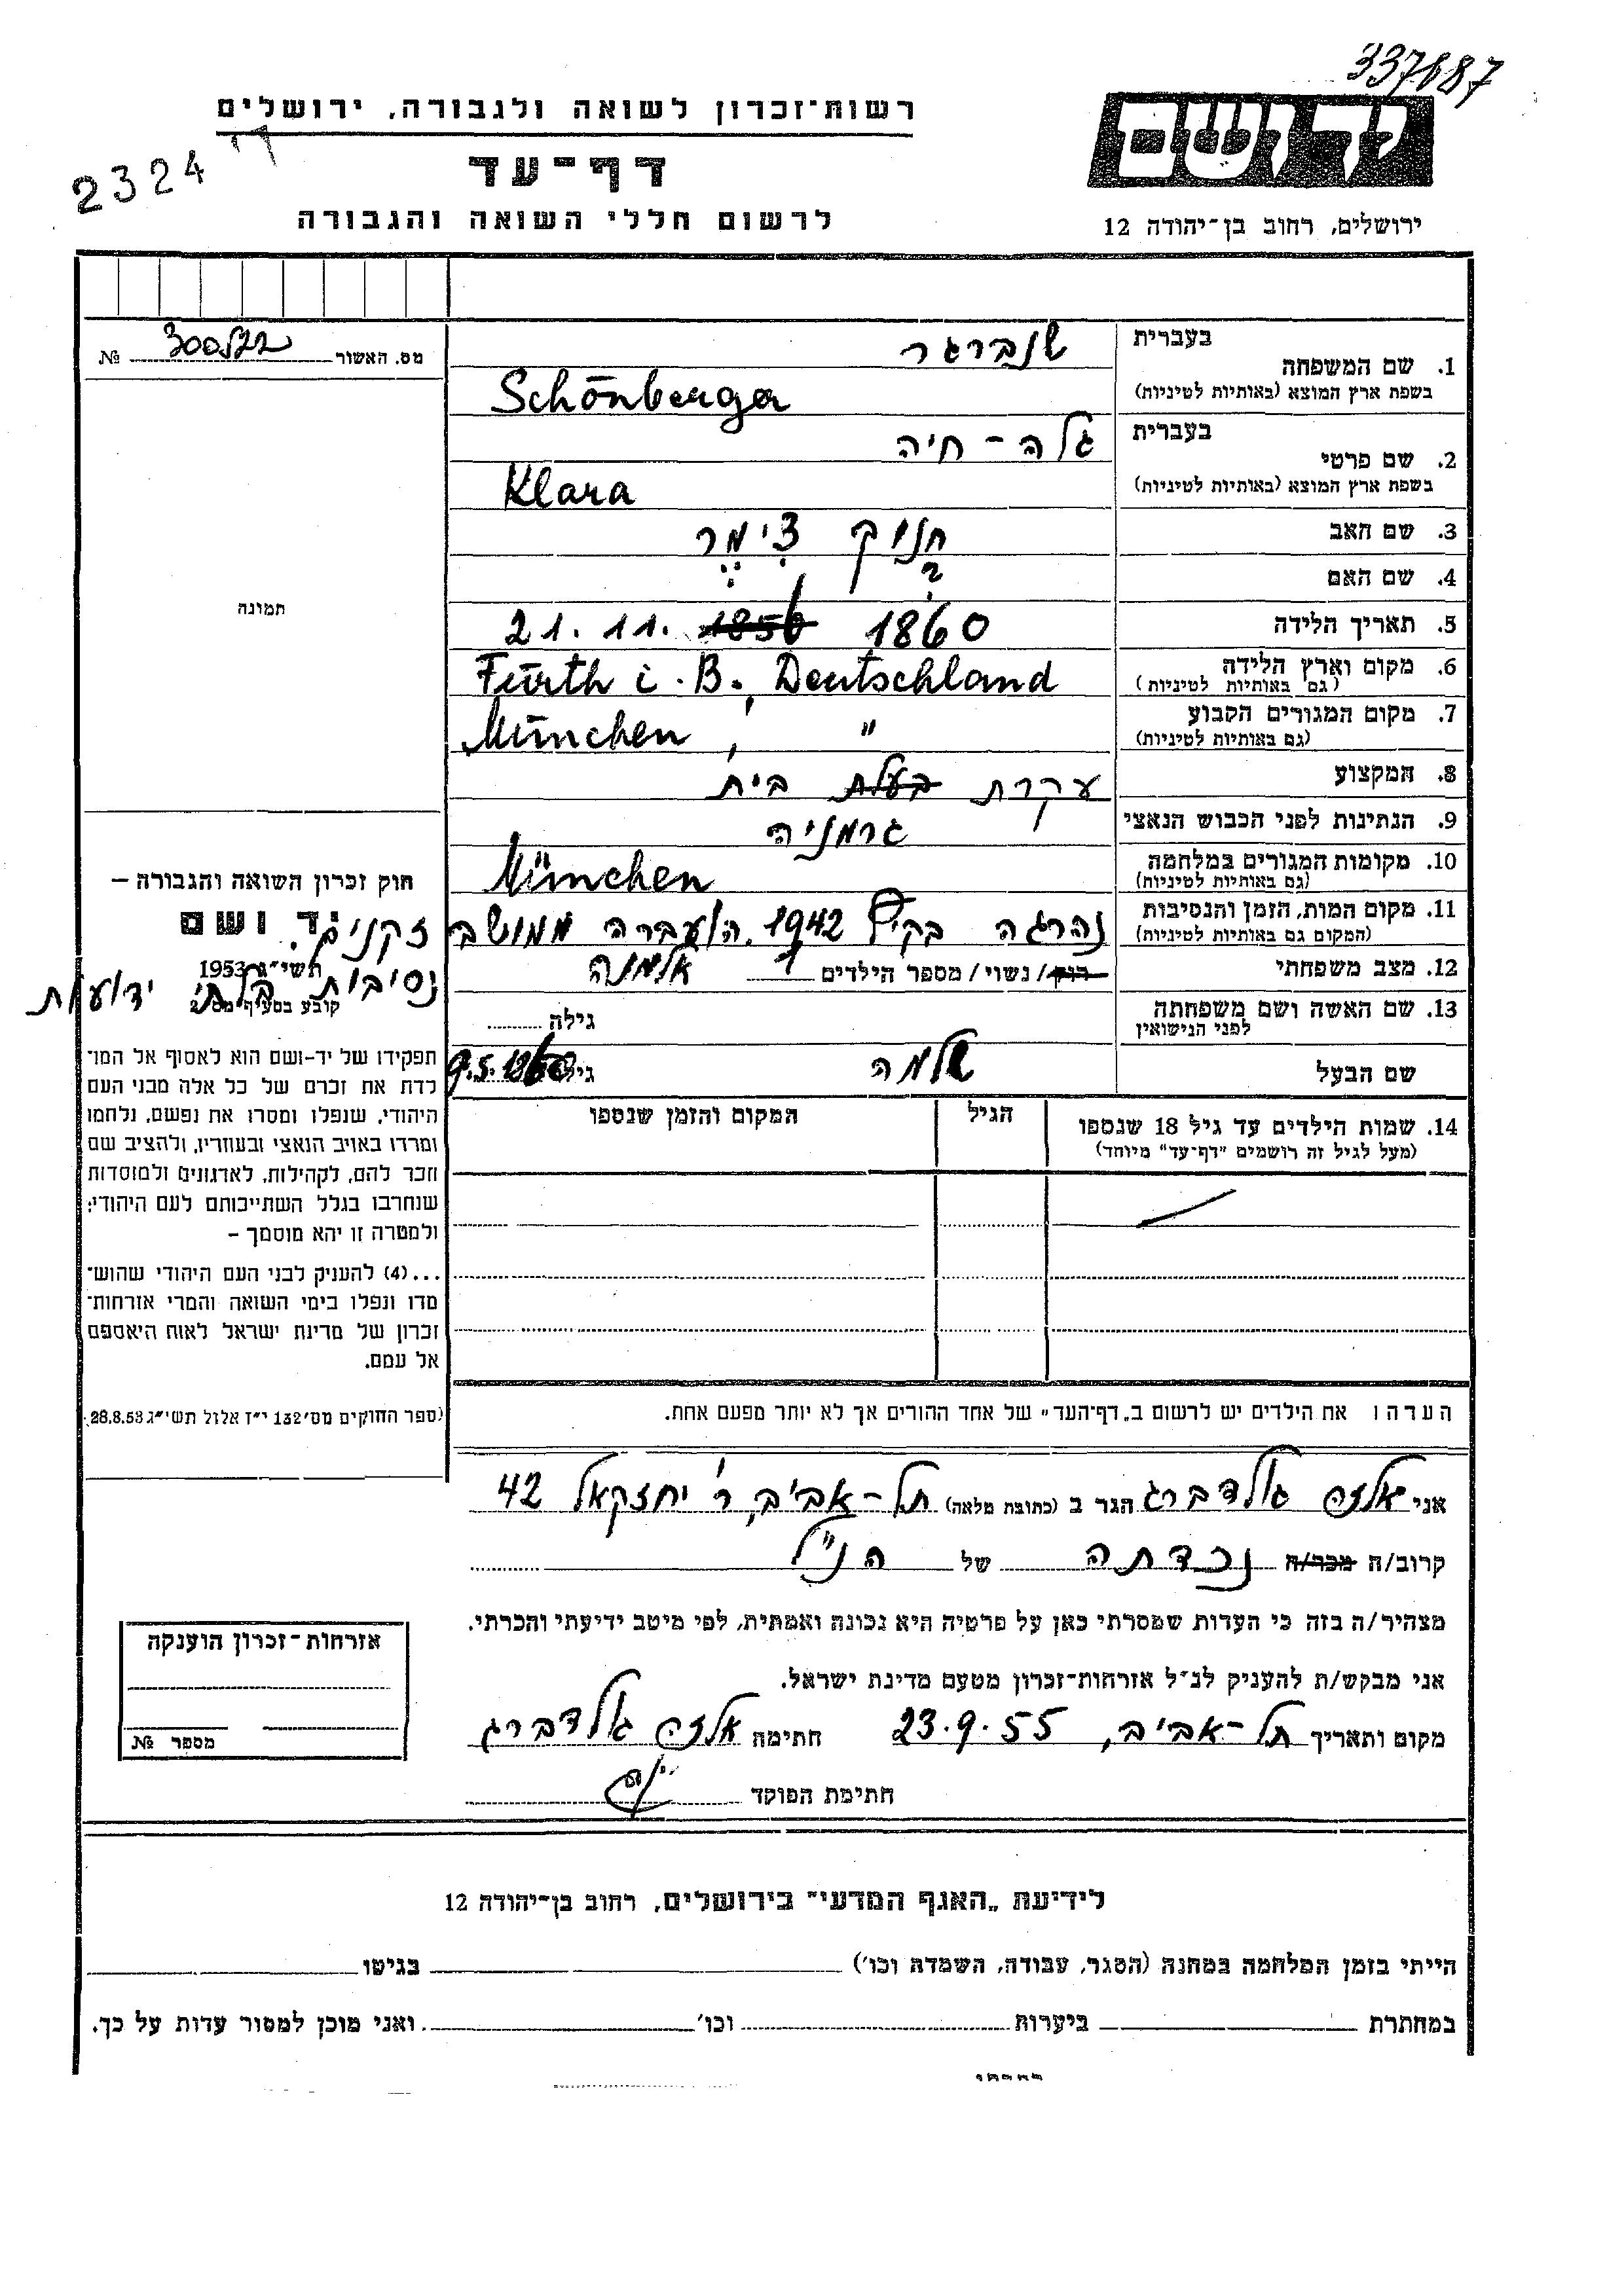 337687
רשות־זכרון לשואה ולגבורה, ירושלים
2324
דף־עד
לרשום חללי השואה והגבורה
יד ושם
ירושלים, רחוב בן־יהודה 12
מס. האשור № 
בעברית שנברגר
1. שם המשפחה
בשפת ארץ המוצא (באותיות לטיניות) Schönberger
בעברית גלה - חיה
2. שם פרטי
בשפת ארץ המוצא (באותיות לטיניות) Klara
3. שם האב חנוך צימר
4. שם האם ?
5. תאריך הלידה 21. 11. 1860
6. מקום וארץ הלידה Fürth i. B., Deutschland
(גם באותיות לטיניות)
7. מקום המגורים הקבוע München, "
(גם באותיות לטיניות)
8. המקצוע עקרת בעלת בית
9. הנתינות לפני הכבוש הנאצי גרמניה
10. מקומות המגורים במלחמה München
(גם באותיות לטיניות)
11. מקום המות, הזמן והנסיבות נהרגה בקיץ 1942. הועברה ממושב זקנים.
(המקום גם באותיות לטיניות) נסיבות בלתי ידועות
12. מצב משפחתי רוק/ נשוי/ מספר הילדים 1 אלמנה
13. שם האשה ושם משפחתה גילה
לפני הנישואין
שם הבעל שלמה גילו 9.5.
14. שמות הילדים עד גיל 18 שנספו הגיל המקום והזמן שנספו
(מעל לגיל זה רושמים "דף־עד" מיוחד)
תמונה
חוק זכרון השואה והגבורה –
יד ושם
תשי״ג 1953
קובע בסעיף מס׳ 2
תפקידו של יד-ושם הוא לאסוף אל המו־
לדת את זכרם של כל אלה מבני העם
היהודי, שנפלו ומסרו את נפשם, נלחמו
ומרדו באויב הנאצי ובעוזריו, ולהציב שם
וזכר להם, לקהילות, לארגונים ולמוסדות
שנחרבו בגלל השתייכותם לעם היהודי;
ולמטרה זו יהא מוסמך –
...(4) להעניק לבני העם היהודי שהוש־
מדו ונפלו בימי השואה והמרי אזרחות־
זכרון של מדינת ישראל לאות היאספם
אל עמם.
(ספר החוקים מס׳ 132 י״ז אלול תשי״ג 28.8.53)
הערה: את הילדים יש לרשום ב„דף־העד" של אחד ההורים אך לא יותר מפעם אחת.
אני אלזה גולדברג הגר ב (כתובת מלאה) תל-אביב, ר' יחזקאל 42
קרוב/ה מכר/ה נכדתה של הנ"ל
מצהיר/ה בזה כי העדות שמסרתי כאן על פרטיה היא נכונה ואמתית, לפי מיטב ידיעתי והכרתי.
אני מבקש/ת להעניק לנ״ל אזרחות־זכרון מטעם מדינת ישראל.
מקום ותאריך תל-אביב, 23.9.55 חתימה אלזה גולדברג
חתימת הפוקד
אזרחות־זכרון הוענקה
מספר №
לידיעת „האגף המדעי" בירושלים, רחוב בן־יהודה 12
הייתי בזמן המלחמה במחנה (הסגר, עבודה, השמדה וכו׳) בגיטו
במחתרת ביערות וכו׳ ואני מוכן למסור עדות על כך.